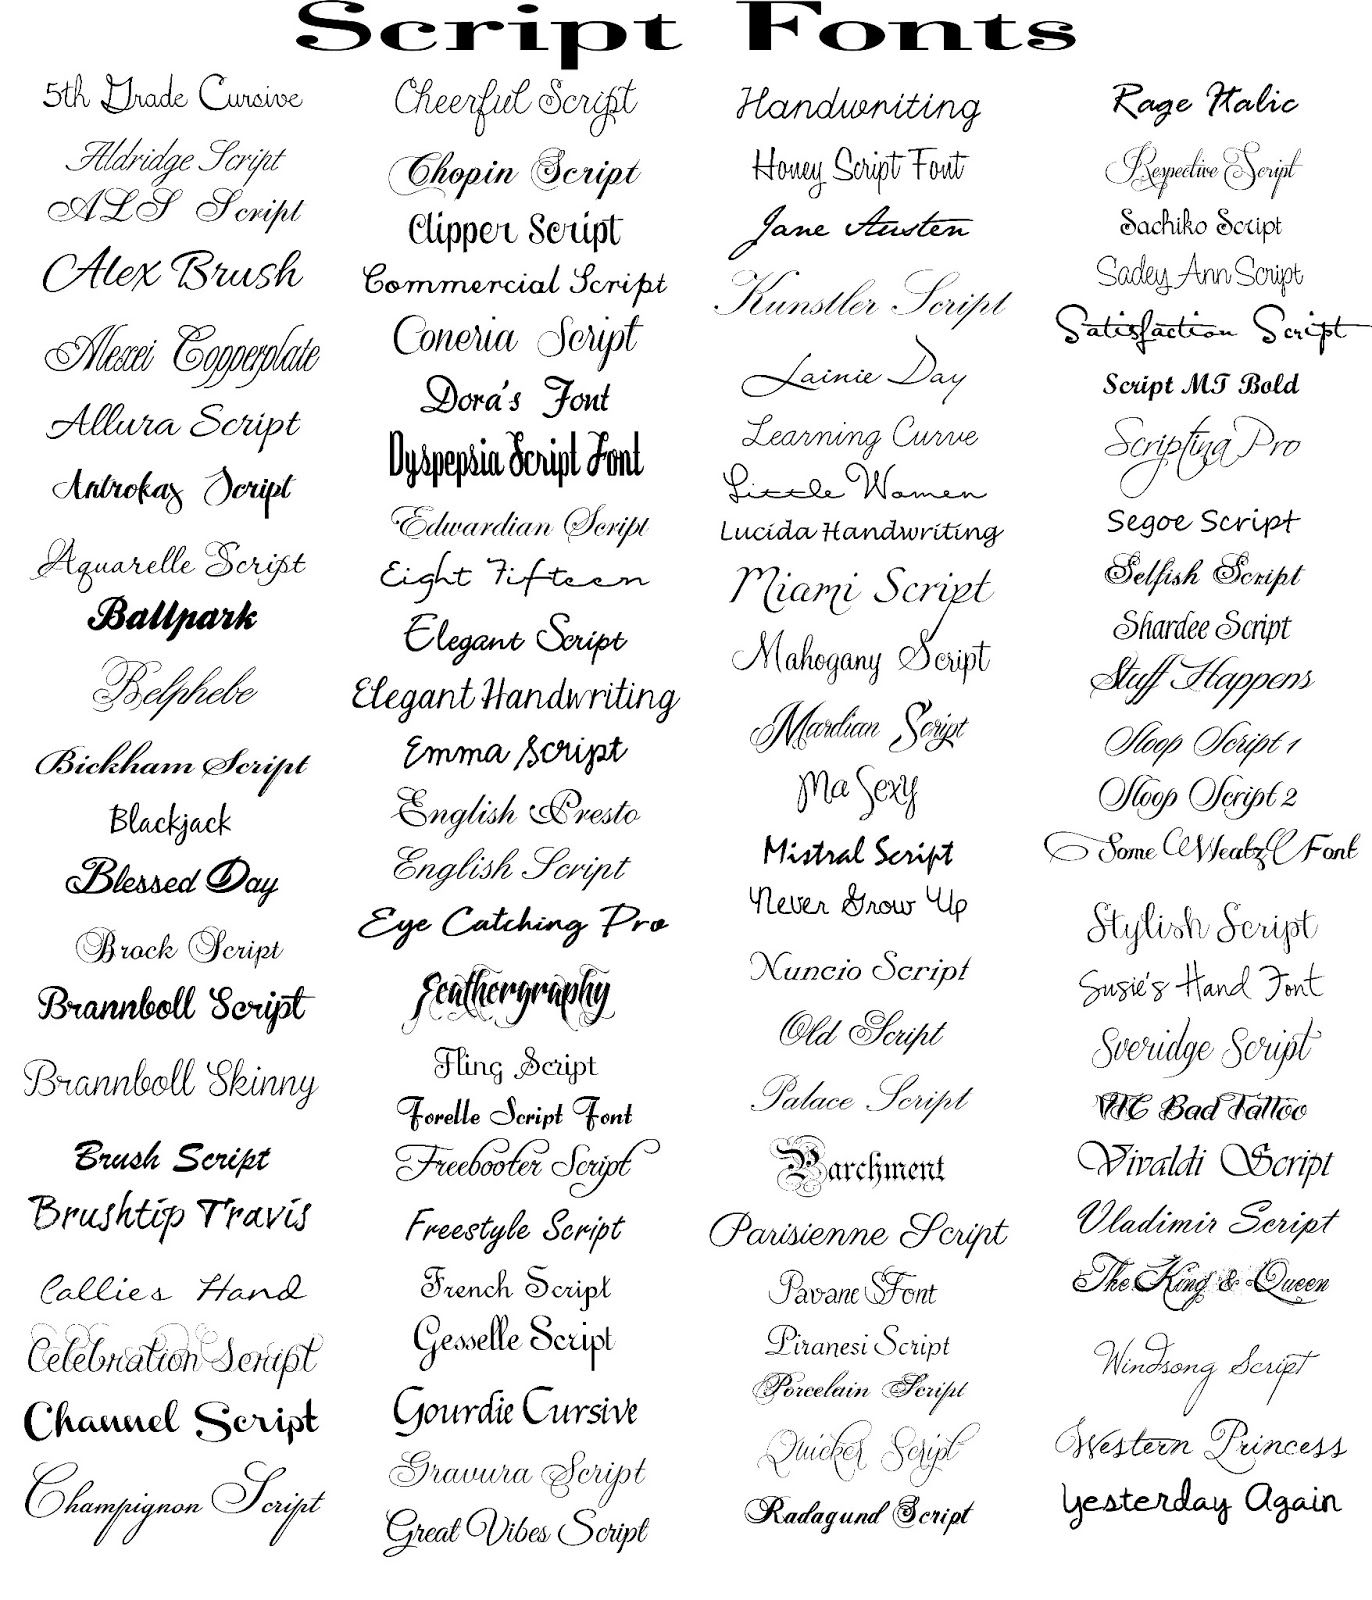 Script Fonts
5th Grade Cursive
Aldridge Script
ALS Script
Alex Brush
Alexei Copperplate
Allura Script
Antrokas Script
Aquarelle Script
Ballpark
Belphebe
Bickham Script
Blackjack
Blessed Day
Brock Script
Brannboll Script
Brannboll Skinny
Brush Script
Brushtip Travis
Callies Hand
Celebration Script
Channel Script
Champignon Script
Cheerful Script
Chopin Script
Clipper Script
Commercial Script
Coneria Script
Dora's Font
Dyspepsia Script Font
Edwardian Script
Eight Fifteen
Elegant Script
Elegant Handwriting
Emma Script
English Presto
English Script
Eye Catching Pro
Feathergraphy
Fling Script
Forelle Script Font
Freebooter Script
Freestyle Script
French Script
Gesselle Script
Gourdie Cursive
Gravura Script
Great Vibes Script
Handwriting
Honey Script Font
Jane Austen
Kunstler Script
Lainie Day
Learning Curve
Little Women
Lucida Handwriting
Miami Script
Mahogany Script
Mardian Script
Ma Sexy
Mistral Script
Never Grow Up
Nuncio Script
Old Script
Palace Script
Parchment
Parisienne Script
Pavane Font
Piranesi Script
Porcelain Script
Quicker Script
Radagund Script
Rage Italic
Respective Script
Sachiko Script
Sadey Ann Script
Satisfaction Script
Script MT Bold
Scriptina Pro
Segoe Script
Selfish Script
Shardee Script
Stuff Happens
Sloop Script 1
Sloop Script 2
Some Weatz Font
Stylish Script
Susie's Hand Font
Sveridge Script
VTC Bad Tattoo
Vivaldi Script
Vladimir Script
The King & Queen
Windsong Script
Western Princess
Yesterday Again